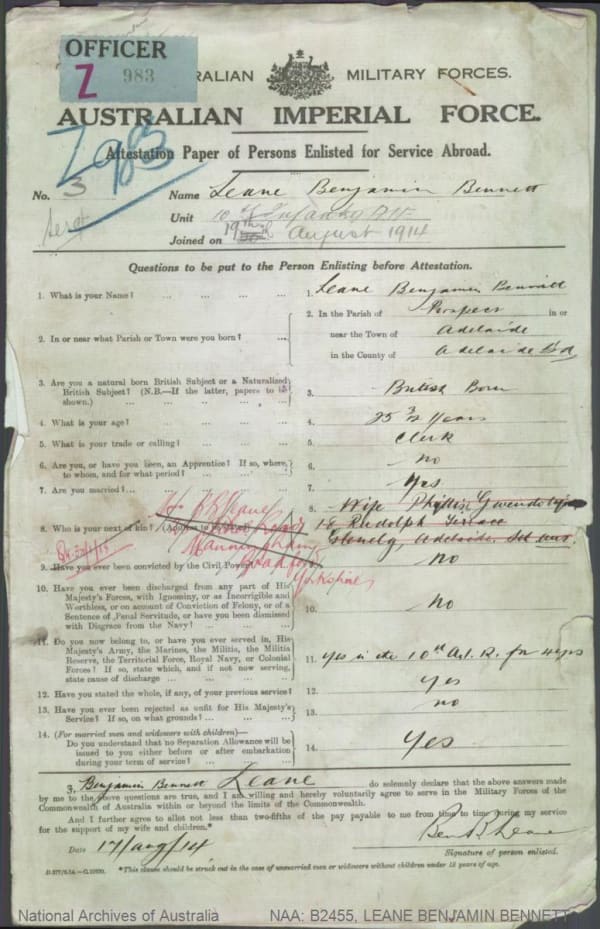 OFFICER
Z 983
RALIAN MILITARY FORCES.
AUSTRALIAN IMPERIAL FORCE.
Z 983
Attestation Paper of Persons Enlisted for Service Abroad.
No. 3 Name Leane Benjamin Bennett
Unit 10th Infantry
Joined on 19th August 1914
Questions to be put to the Person Enlisting before Attestation.
1. What is your Name? ... ... ... ... 1. Leane Benjamin Bennett
2. In or near what Parish or Town were you born? ... 2. In the Parish of Prospect in or
near the Town of Adelaide
in the County of Adelaide
3. Are you a natural born British Subject or a Naturalized
British Subject? (N.B.—If the latter, papers to be
shown.) ... ... ... ... 3. British Born
4. What is your age? ... ... ... ... 4. 25 3/12 years
5. What is your trade or calling? ... ... ... 5. Clerk
6. Are you, or have you been, an Apprentice? If so, where,
to whom, and for what period? ... ... ... 6. No
7. Are you married? ... ... ... ... 7. Yes
8. Who is your next of kin? (Address to be stated) 8. Wife Phyllis Gwendolyn
18 Rudolph Terrace
Glenelg, Adelaide, Sth Aus
Leane
Manningham
Bradford
Yorkshire
9. Have you ever been convicted by the Civil Power? 9. No
10. Have you ever been discharged from any part of His
Majesty's Forces, with Ignominy, or as Incorrigible and
Worthless, or on account of Conviction of Felony, or of a
Sentence of Penal Servitude, or have you been dismissed
with Disgrace from the Navy? ... ... ... 10. No
11. Do you now belong to, or have you ever served in, His
Majesty's Army, the Marines, the Militia, the Militia
Reserve, the Territorial Force, Royal Navy, or Colonial
Forces? If so, state which, and if not now serving,
state cause of discharge ... ... ... 11. yes in the 10th A.I.R. for 4 yrs
12. Have you stated the whole, if any, of your previous service? 12. yes
13. Have you ever been rejected as unfit for His Majesty's
Service? If so, on what grounds? ... ... ... 13. no
14. (For married men and widowers with children)—
Do you understand that no Separation Allowance will be
issued to you either before or after embarkation
during your term of service? ... ... ... 14. Yes
I, Benjamin Bennett Leane do solemnly declare that the above answers made
by me to the above questions are true, and I am willing and hereby voluntarily agree to serve in the Military Forces of the
Commonwealth of Australia within or beyond the limits of the Commonwealth.
And I further agree to allot not less than two-fifths of the pay payable to me from time to time during my service
for the support of my wife and children.*
Date 17/aug/14 Ben B Leane
Signature of person enlisted.
*This clause should be struck out in the case of unmarried men or widowers without children under 18 years of age.
National Archives of Australia NAA: B2455, LEANE BENJAMIN BENNETT